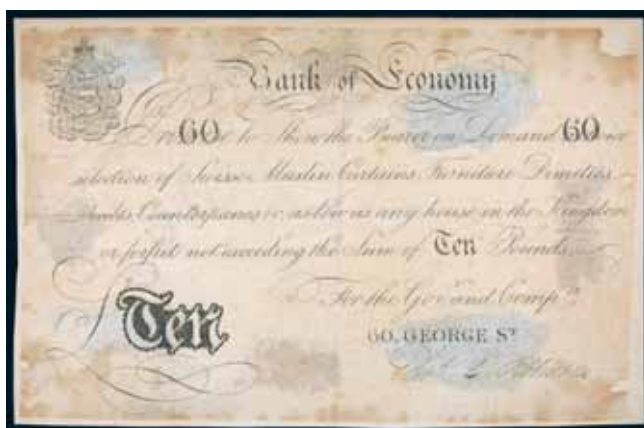 Bank of Economy
I Promise to Shew the Bearer on Demand
60 60
selection of Swiss Muslin Curtains Furniture Dimities
Counterpanes &c as low as any house in the Kingdom
or forfeit not exceeding the Sum of Ten Pounds
For the Govr. and Compa.
£ Ten
60, GEORGE ST